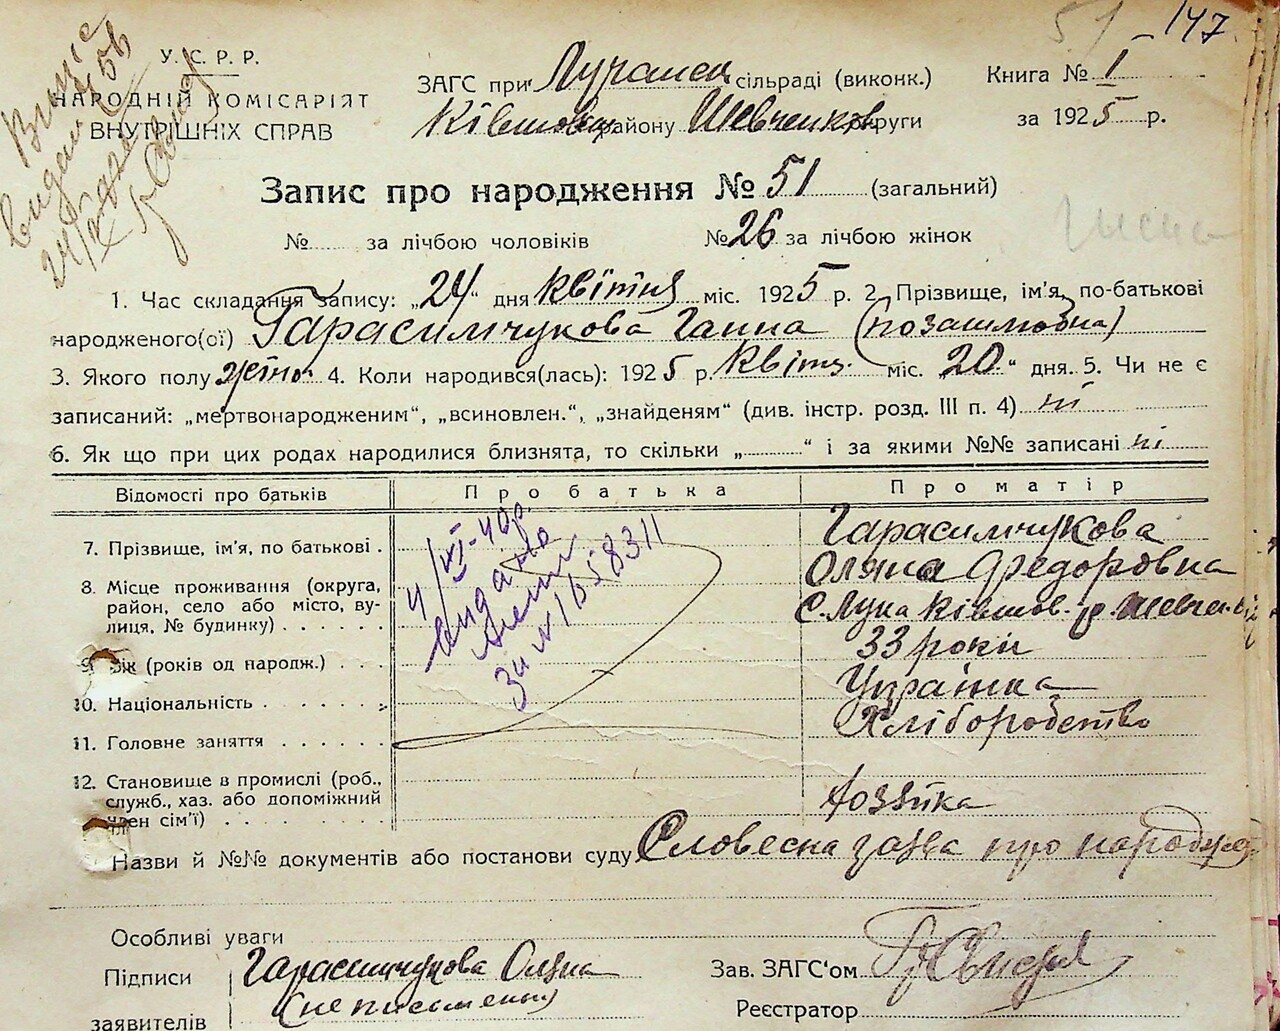 147
51
У. С. Р. Р.
НАРОДНІЙ КОМІСАРІЯТ
ВНУТРІШНІХ СПРАВ
ЗАГС при Лучанск сільраді (виконк.)
району Шевченк округи
Книга № I
за 1925 р.
Запис про народження № 51 (загальний)
№ за лічбою чоловіків № 26 за лічбою жінок
1. Час складання запису: „24“ дня квітня міс. 1925 р. 2. Прізвище, ім'я, по-батькові
народженого(ої) Гарасимчукова Ганна (позашлюбна)
3. Якого полу жіно. 4. Коли народився(лась): 1925 р. квітн. міс. „20.“ дня. 5. Чи не є
записаний: „мертвонародженим“, „всиновлен.“, „знайденям“ (див. інстр. розд. III п. 4) ні
6. Як що при цих родах народилися близнята, то скільки „ “ і за якими №№ записані ні
Відомості про батьків Про батька Про матір
7. Прізвище, ім'я, по батькові . Гарасимчукова
Оляна Федоровна
8. Місце проживання (округа,
район, село або місто, ву-
лиця, № будинку) . . . . . с. Лука Ківшов. р Шевчен.
9. Вік (років од народж.) . . . 33 роки
10. Національність . . . . . . Українка
11. Головне заняття . . . . . . Хліборобство
12. Становище в промислі (роб.,
служб., хаз. або допоміжний
член сім'ї) . . . . . . . . Хозяйка
4/VI-40р.
видано
за № 1658311
Назви й №№ документів або постанови суду Словесна заява про народж
Особливі уваги
Підписи Гарасимчукова Оляна
заявителів (неписьменна)
Зав. ЗАГС'ом
Реєстратор